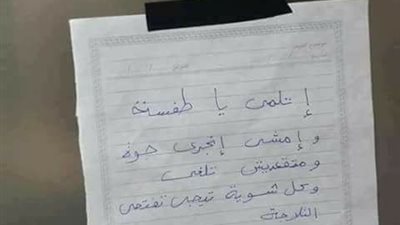 إتلمى يا طفسة
و إمشى إنجرى جوة
ومتقعديش تلغى
وكل شوية تيجى تفتحى
التلاجة